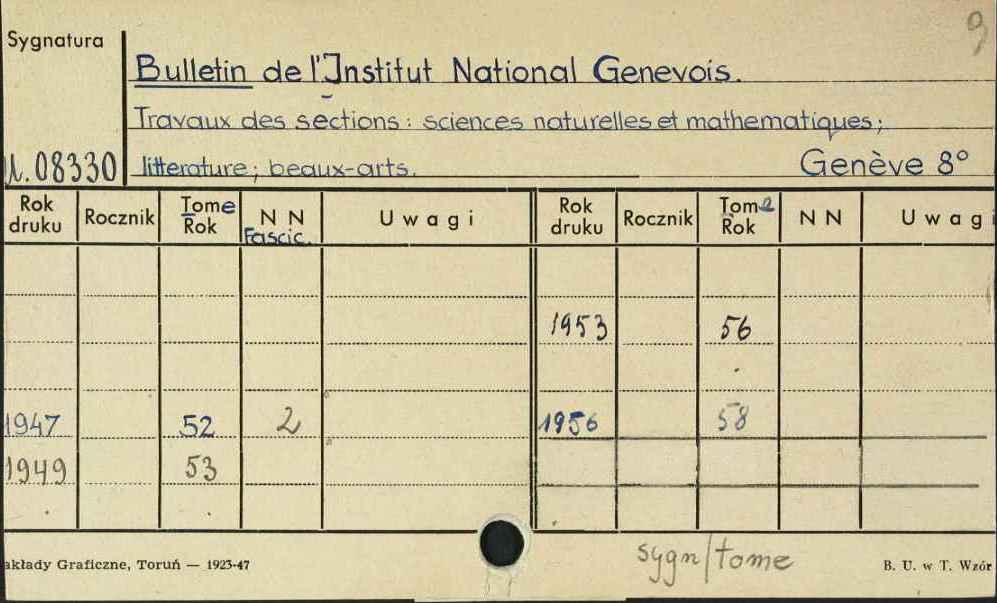 9
Sygnatura
Bulletin de l'Institut National Genevois.
Travaux des sections: sciences naturelles et mathematiques;
U.08330 litterature; beaux-arts. Genève 8°
Rok druku Rocznik Tome Rok NN Fascic. Uwagi Rok druku Rocznik Tome Rok NN Uwagi
1953 56
1947 52 2 1956 58
1949 53
sygn/tome
akłady Graficzne, Toruń — 1923-47 B. U. w T. Wzór